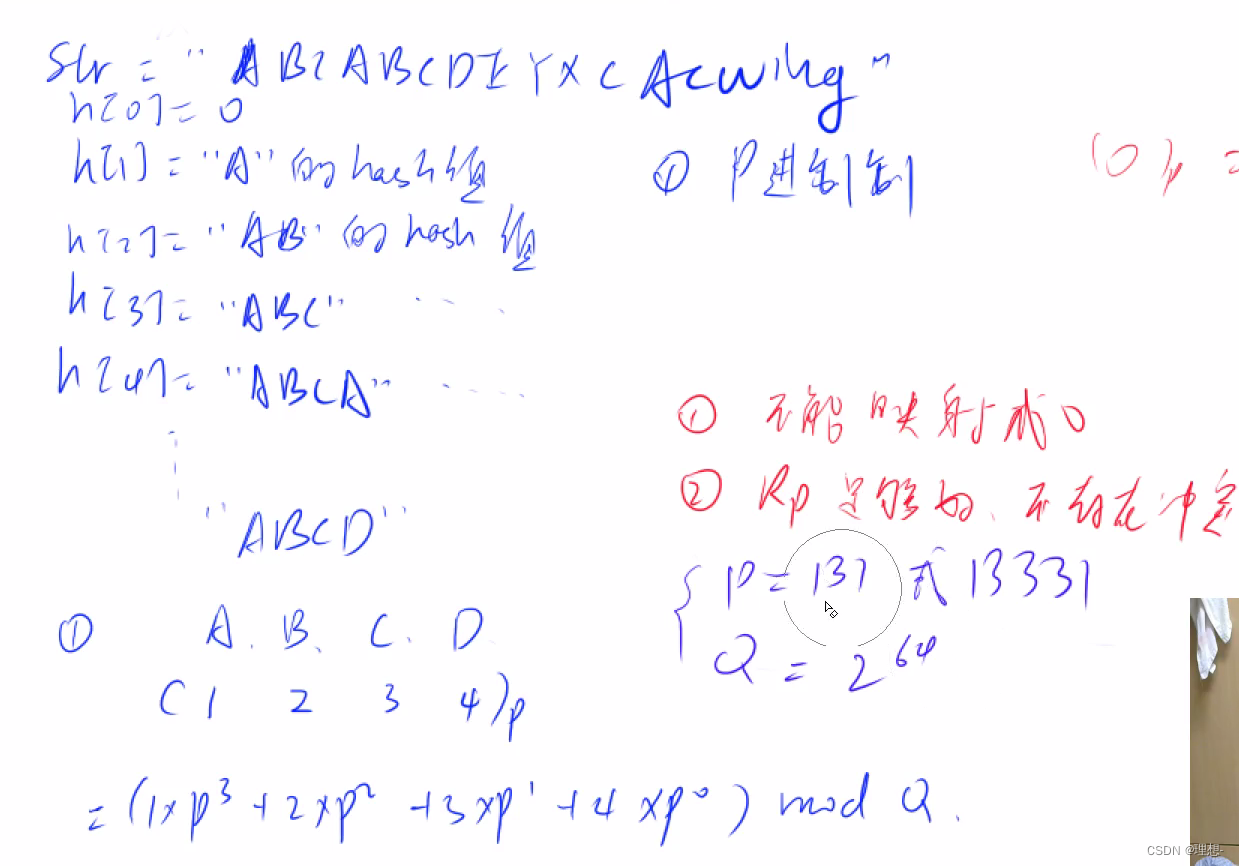 Str = "ABCABCDEYXCAcwing"
h[0] = 0
h[1] = "A" 的 hash值
① P进制
(0)p =
h[2] = "AB" 的 hash 值
h[3] = "ABC" ······
h[4] = "ABCA" ······
① 不能映射成0
② Rp足够好、不存在冲突
"ABCD"
P = 131 或 13331
Q = 2^64
① A. B、 C. D
( 1 2 3 4 )p
= (1×p^3 + 2×p^2 + 3×p^1 + 4×p^0) mod Q.
CSDN @理想-